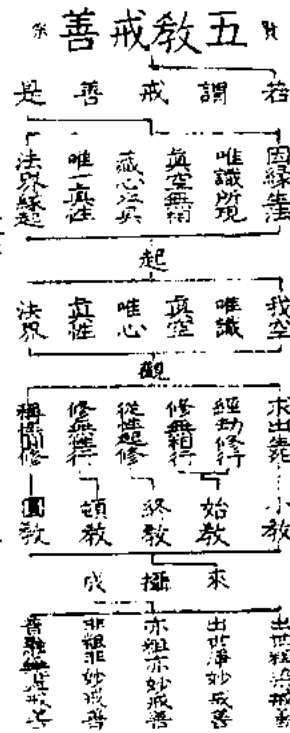 賢 五教戒善 宗
若謂戒善是
因緣生法
唯識所現
真空無相
藏心
唯一真性
法界緣起
起
我空
唯識
真空
唯心
真性
法界
觀
求出
經劫修行
修無相行
從性起修
修無性行
稱性
小教
始教
終教
頓教
圓教
來攝成
出世粗
出世淨妙戒善
亦粗亦妙戒善
非粗非妙戒善
戒善